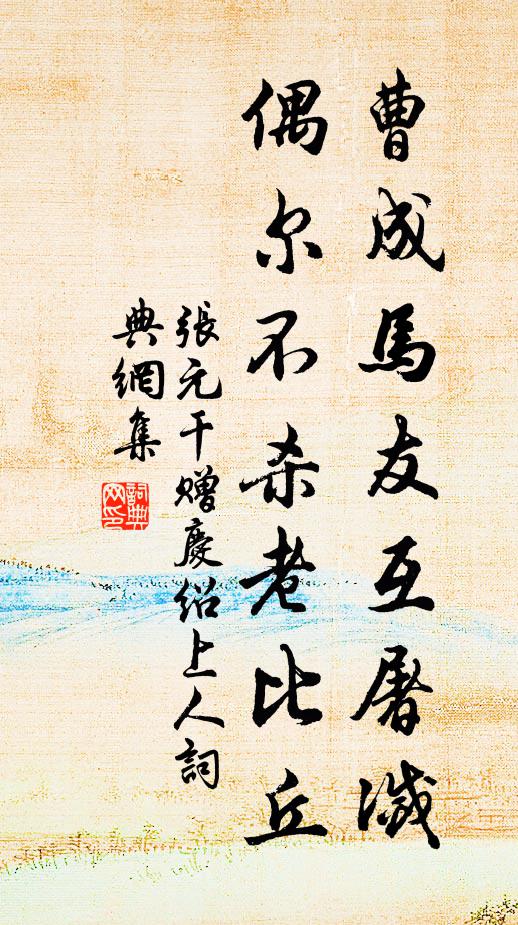 曹成馬友互屠滅
偶尔不杀老比丘
張元干贈慶紹上人詞
典網集
詞典
网印